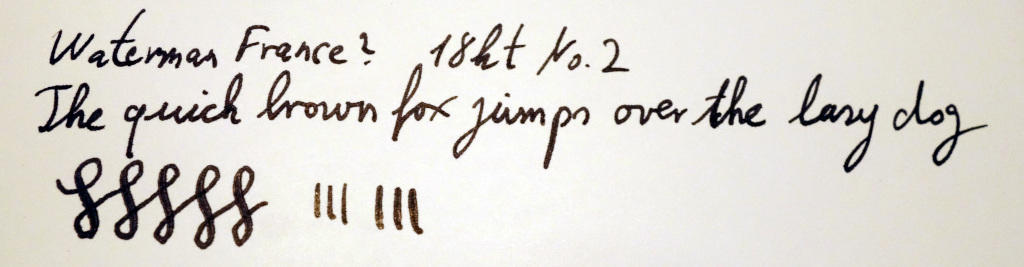 Waterman France? 18kt No. 2
The quick brown fox jumps over the lazy dog